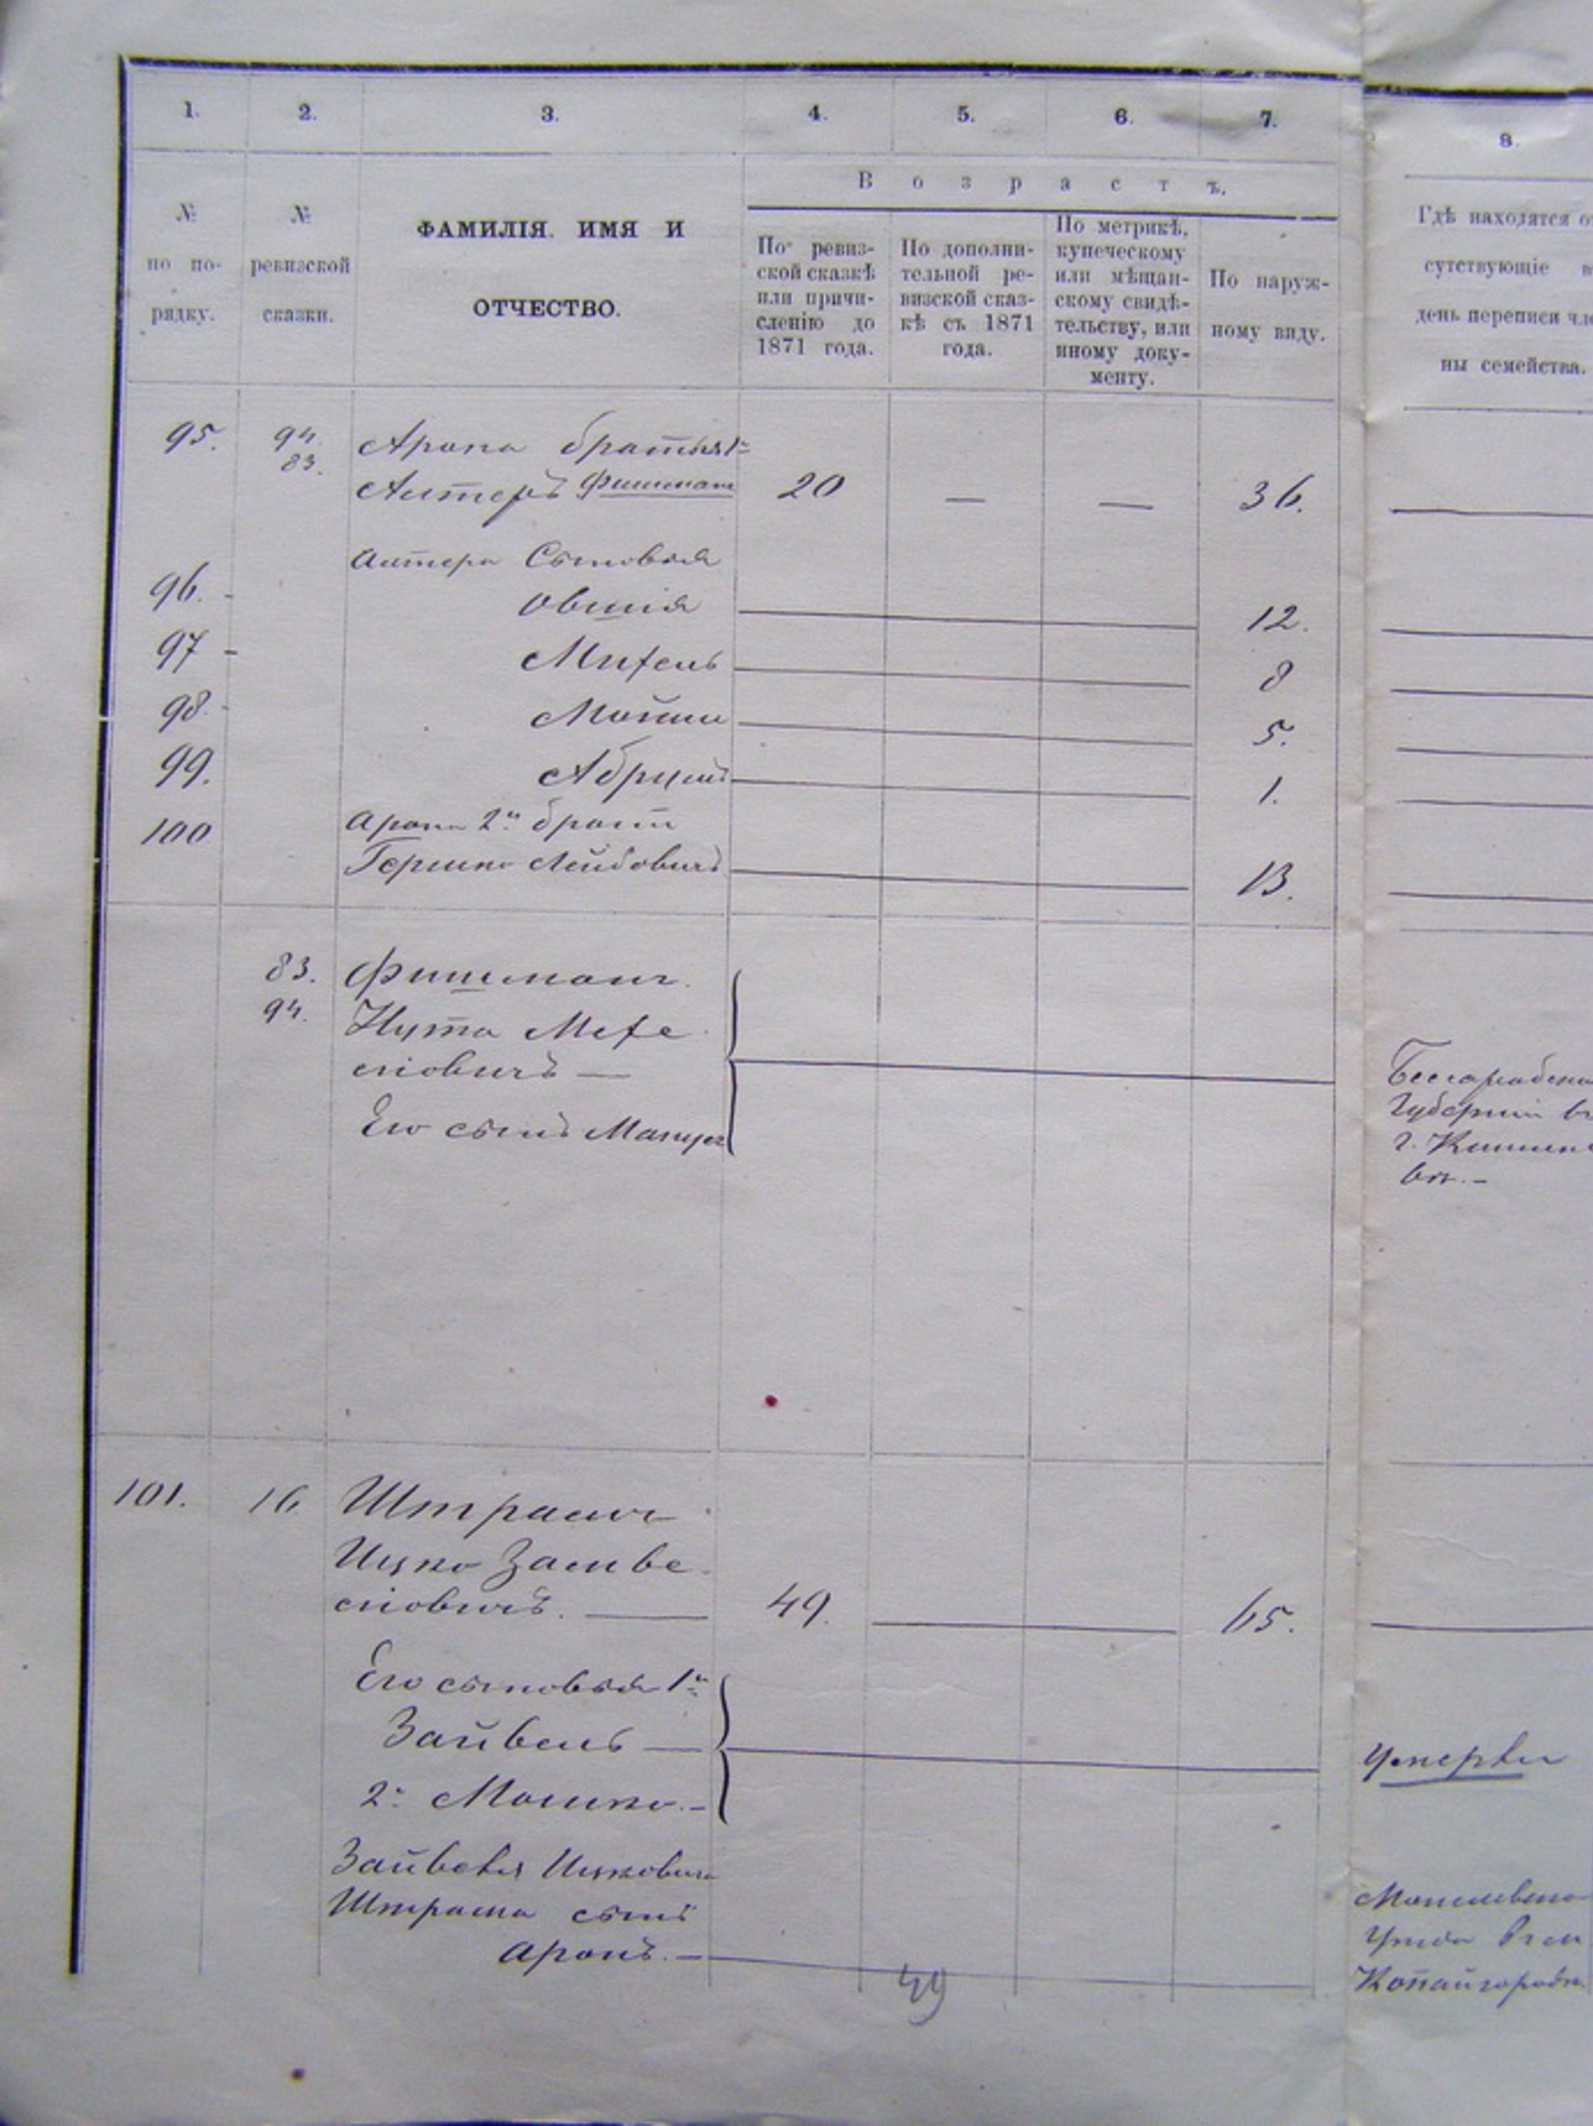 1. 2. 3. 4. 5. 6. 7. 8.
В о з р а с т ъ.
№ по по-рядку.
№ ревизской сказки.
ФАМИЛІЯ. ИМЯ И
ОТЧЕСТВО.
По ревиз-
ской сказкѣ
или причи-
сленію до
1871 года.
По дополни-
тельной ре-
визской сказ-
кѣ съ 1871
года.
По метрикѣ,
купеческому
или мѣщан-
скому свидѣ-
тельству, или
иному доку-
менту.
По наруж-
ному виду.
Гдѣ находятся от
сутствующіе в
день переписи чле
ны семейства.
95. 94. Арона братья 1й
83. Антеръ Фишманъ 20 — — 36. —
Антера Сыновья
96. - Овшія 12.
97 - Михель 8
98 - Мошко 5.
99. Абрумъ 1.
100 Арона 2й братъ
Гершко Лейбовичъ 13.
83. Фишманъ.
94. Нута Мехе
ліовичъ —
Его сынъ Манус
Бессарабско
Губерніи въ
г. Кишине
вѣ. -
101. 16. Штрамъ
Ицко Займве
ліовичъ. — 49. 65.
Его сыновья 1й
Зайвель —
2й Мошко. -
Умерли
Зайвеля Ицковича
Штрама сынъ
Аронъ. -
Могилевско
Уѣзда
Копайгородъ
49